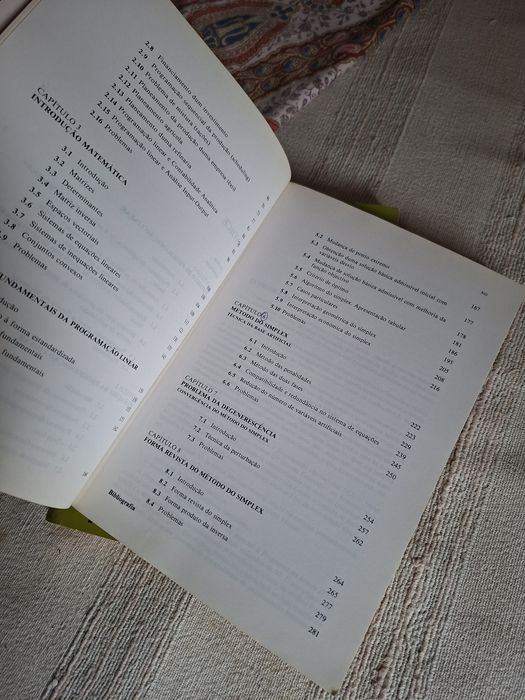 2.8 Financiamento dum investimento
2.9 Programação sequencial da produção (scheduling)
2.10 Problema de mistura (rações)
2.11 Planeamento da produção duma empresa têxtil
2.12 Planeamento agrícola
2.13 Planeamento duma refinaria
2.14 Programação linear e Contabilidade Analítica
2.15 Programação linear e Análise Input Output
2.16 Problemas
CAPÍTULO 3
INTRODUÇÃO MATEMÁTICA
3.1 Introdução
3.2 Matrizes
3.3 Determinantes
3.4 Matriz inversa
3.5 Espaços vectoriais
3.6 Sistemas de equações lineares
3.7 Sistemas de inequações lineares
3.8 Conjuntos convexos
3.9 Problemas
FUNDAMENTAIS DA PROGRAMAÇÃO LINEAR
à forma estandardizada
fundamentais
fundamentais
XIII
5.2 Mudança de ponto extremo 167
5.3 Obtenção duma solução básica admissível inicial com
variáveis desvio 177
5.4 Mudança de solução básica admissível com melhoria da
função objectivo 178
5.5 Critério de óptimo 181
5.6 Algoritmo do simplex. Apresentação tabular 186
5.7 Casos particulares 195
5.8 Interpretação geométrica do simplex 205
5.9 Interpretação económica do simplex 208
Problemas 216
CAPÍTULO 6
MÉTODO DO SIMPLEX
TÉCNICA DA BASE ARTIFICIAL
6.1 Introdução 222
6.2 Método das penalidades 223
6.3 Método das duas fases 229
6.4 Compatibilidade e redundância no sistema de equações 239
6.5 Redução do número de variáveis artificiais 245
6.6 Problemas 250
CAPÍTULO 7
PROBLEMA DA DEGENERESCÊNCIA
CONVERGÊNCIA DO MÉTODO DO SIMPLEX
7.1 Introdução 254
7.2 Técnica da perturbação 257
7.3 Problemas 262
CAPÍTULO 8
FORMA REVISTA DO MÉTODO DO SIMPLEX
8.1 Introdução 264
8.2 Forma revista do simplex 265
8.3 Forma produto da inversa 277
8.4 Problemas 279
Bibliografia 281